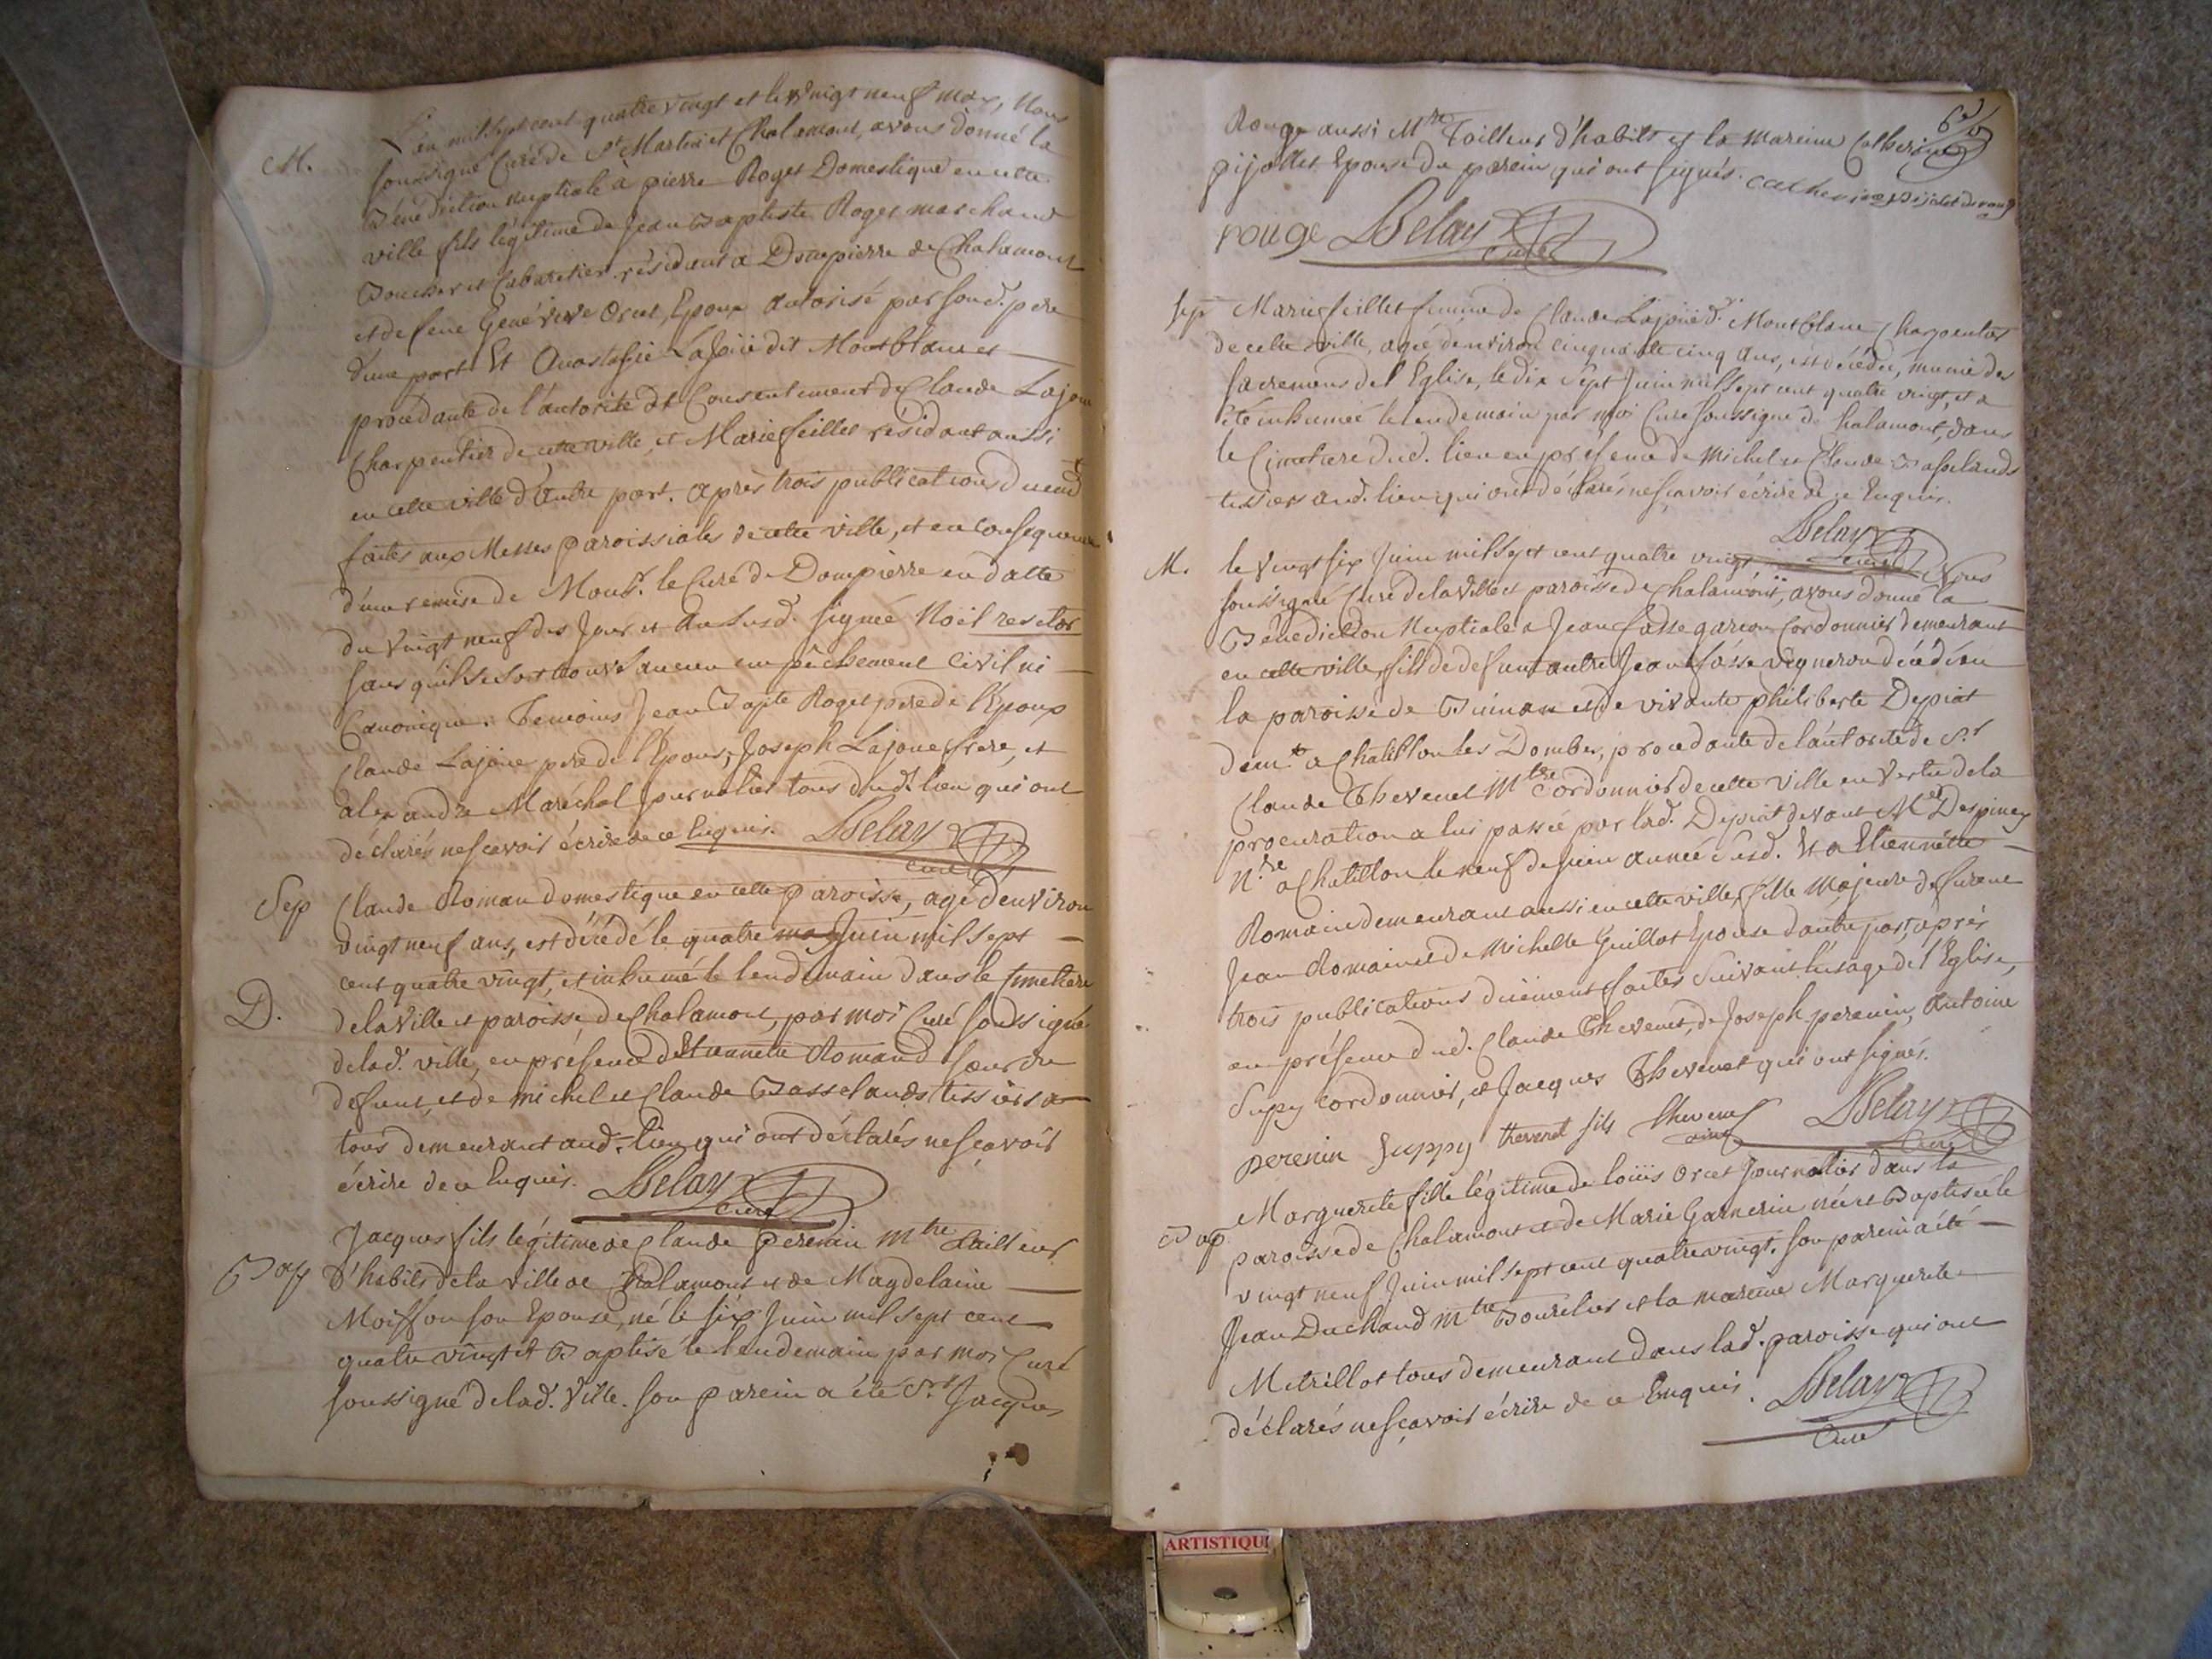 M. L'an mil sept cent quatre vingt et le vingt neuf may, Nous
soussigné Curé de St Martin et Chalamont, avons donné la
Bénédiction nuptiale a pierre Roget Domestique en cette
ville fils légitime de Jean Baptiste Roget marchand
Boucher et Cabaretier résidant a Dompierre de Chalamont
et de feue Genévieve Orcet, Epoux autorisé par sond. pere
d'une part Et Anastasie Lajoüe dit Montblanc et
procedante de l'autorité et Consentement de Claude Lajoue
Charpentier de cette ville, et Marie feillet résidant aussi
en cette ville d'autre part. après trois publications duem.t
faites aux Messes Paroissiales de cette ville, et en Consequence
d'une remise de Mons.r le Curé de Dompierre en datte
du vingt neuf des Jour et an susd. signée Noël rector
sans qu'il se soit trouvé aucun empêchement Civil ni
Canonique. Temoins Jean Bapte Roget pere de l'Epoux
Claude Lajoüe pere de l'Epouse, Joseph Lajoue frere, et
alexandre Maréchal Journalier tous dud. lieu qui ont
déclarés ne sçavoir écrire de ce Enquis. Delay
Curé
Sep Claude Roman domestique en cette Paroisse, agé d'environ
vingt neuf ans, est décédé le quatre may Juin mil sept
cent quatre vingt, et inhumé le lendemain dans le Cimetiere
D. de la Ville et paroisse de Chalamont, par moi Curé soussigné
de lad. ville, en présence d'Etiennette Romand soeur du
defunt, et de michel et Claude Basselands tissiers
tous demeurant aud. lieu qui ont déclarés ne sçavoir
écrire de ce Enquis. Delay
Curé
Jacques fils légitime de Claude perenin Mtre tailleur
Bap d'habits de la ville de Chalamont et de Magdelaine
Moisson son Epouse, né le six Juin mil sept cent
quatre vingt et Baptisé le lendemain par moi Curé
soussigné de lad. Ville. son parein a été Sr Jacques
Rouge aussi Mtre Tailleur d'habits et la mareine Catherine
pijollet Epouse du parein qui ont signés. catherine pijolet de rouge
rouge Delay
Curé
Sep Marie feillet femme de Claude Lajoüe d.t Montblanc Charpentier
de cette ville, agée d'environ cinquante cinq ans, est décédée, munie des
sacremens de l'Eglise, le dix sept Juin mil sept cent quatre vingt, et a
été inhumée le lendemain par moi Curé soussigné de Chalamont, dans
le Cimetiere dud. lieu en présence de Michel et Claude Basselands
tissiers aud. lieu qui ont déclarés ne sçavoir écrire de ce Enquis.
Delay
Curé
M. le vingt six Juin mil sept cent quatre vingt Nous
soussigné Curé de la ville et paroisse de Chalamont, avons donné la
Bénédiction Nuptiale a Jean fasse garçon Cordonnier demeurant
en cette ville, fils de defunt autre Jean fasse vigneron décédé en
la paroisse de et de vivante philiberte Depiat
dem.te a Chatillon les Dombes, procedante de l'autorité de S.r
Claude Thevenet Mtre Cordonnier de cette ville en vertu de la
procuration a lui passée par lad. Depiat devant Me Despiney
N.re a Chatillon le neuf de juin année susd. Et a Etiennette
Romain demeurant aussi en cette ville, fille Majeure de furent
Jean Romain et de Michelle Guillot Epouse d'autre part, après
trois publications duëment faites suivant l'usage de l'Eglise,
en présence dud. Claude Thevenet, de Joseph perenin, Antoine
Supy Cordonnier, et Jacques Thevenet qui ont signés.
perenin Suppy thevenet fils thevenet Delay
Curé
Marguerite fille légitime de loüis Orcet Journalier dans la
Bap paroisse de Chalamont et de Marie Garnerin née et Baptisée le
vingt neuf Juin mil sept cent quatre vingt. son parein a été
Jean Duchand Mtre Bourelier et la mareine Marguerite
Metrillot tous demeurant dans lad. paroisse qui ont
déclarés ne sçavoir écrire de ce Enquis. Delay
Curé
ARTISTIQU